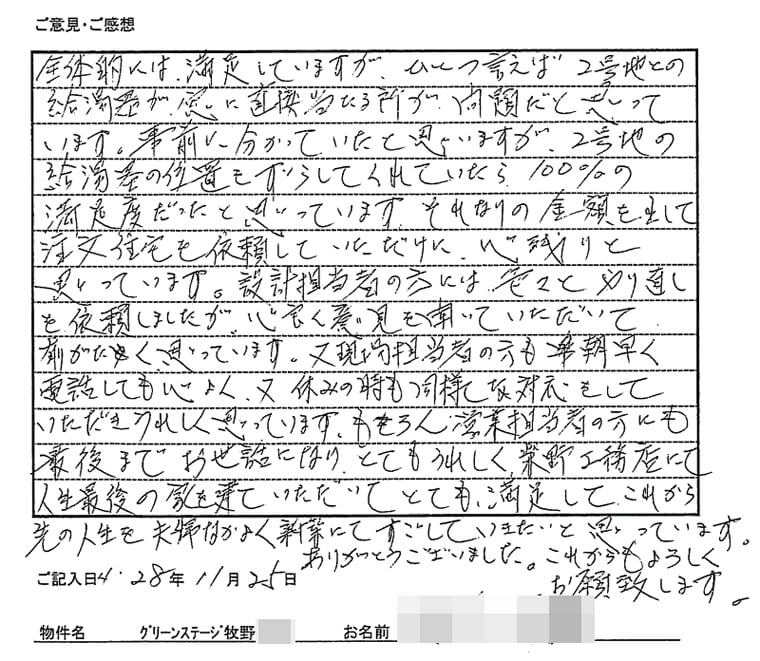 ご意見・ご感想
全体的には、満足していますが、ひとつ言えば 2号地との
給湯器が、窓に直接当たる所が、問題だと思って
います。事前に分かっていたと思いますが、2号地の
給湯器の位置をずらしてくれていたら、100%の
満足度だったと思っています。それなりの金額を出して
注文住宅を依頼していただけに、心残りと
思っています。設計担当者の方には、色々とやり直し
を依頼しましたが、心良く意見を聞いていただいて
有がたく思っています。又現場担当者の方も事朝早く
電話しても心よく、又 休みの時も同様な対応をして
いただきうれしく思っています。もちろん営業担当者の方にも
最後までお世話になり、とてもうれしく、栄野工務店にて
人生最後の家を建ていただいて とても、満足して、これから
先の人生を夫婦なかよく新築にてすごしていきたいと思っています。
ありがとうございました。これからもよろしく
お願致します。
ご記入日 28年 11月25日
物件名 グリーンステージ牧野 お名前